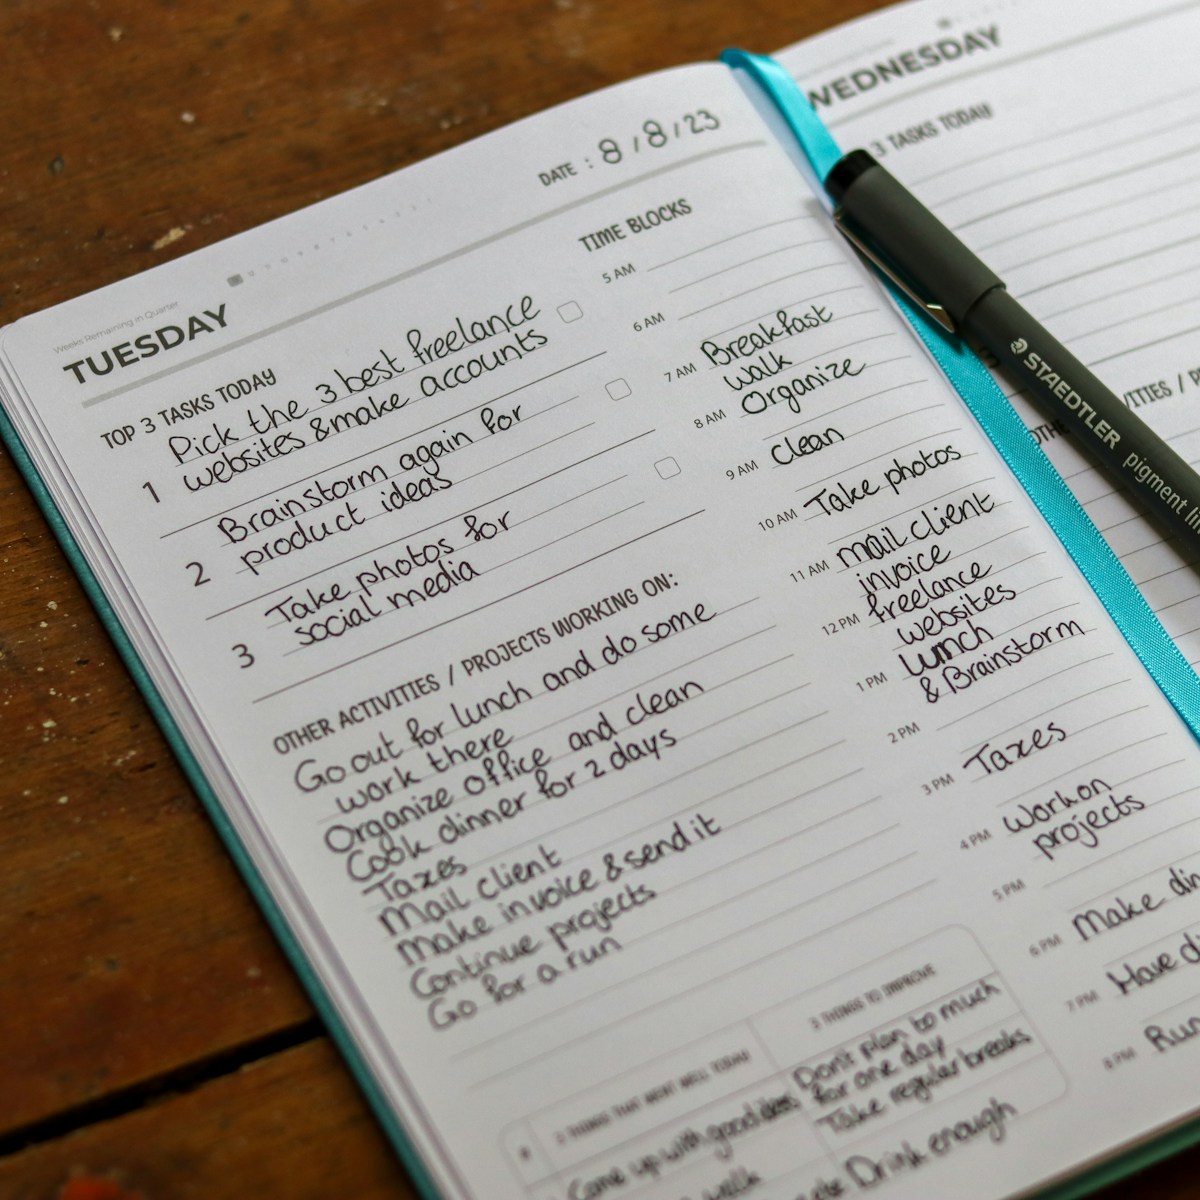 Weeks Remaining in Quarter
TUESDAY
DATE : 8/8/23
TOP 3 TASKS TODAY
1 Pick the 3 best freelance
websites & make accounts
2 Brainstorm again for
product ideas
3 Take photos for
social media
OTHER ACTIVITIES / PROJECTS WORKING ON:
Go out for lunch and do some
work there
Organize office and clean
Cook dinner for 2 days
Taxes
Mail client
Make invoice & send it
Continue projects
Go for a run
TIME BLOCKS
5 AM
6 AM
7 AM Breakfast
walk
8 AM Organize
9 AM Clean
10 AM Take photos
11 AM mail client
invoice
12 PM freelance
websites
1 PM lunch
& Brainstorm
2 PM
3 PM Taxes
4 PM Work on
projects
5 PM
6 PM Make din
7 PM Have d
8 PM Run
2 THINGS THAT WENT WELL TODAY
Come up with good ideas
walk
3 THINGS TO IMPROVE
Don't plan to much
for one day
Take regular breaks
Drink enough
WEDNESDAY
3 TASKS TODAY
OTHE
VITIES / PR
STAEDTLER pigment li